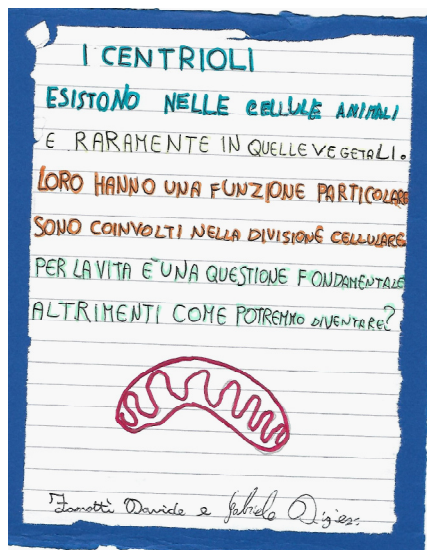 I CENTRIOLI
ESISTONO NELLE CELLULE ANIMALI
E RARAMENTE IN QUELLE VEGETALI.
LORO HANNO UNA FUNZIONE PARTICOLARE
SONO COINVOLTI NELLA DIVISIONE CELLULARE
PER LA VITA È UNA QUESTIONE FONDAMENTALE
ALTRIMENTI COME POTREMMO DIVENTARE?
Zanotti Davide e Gabriele